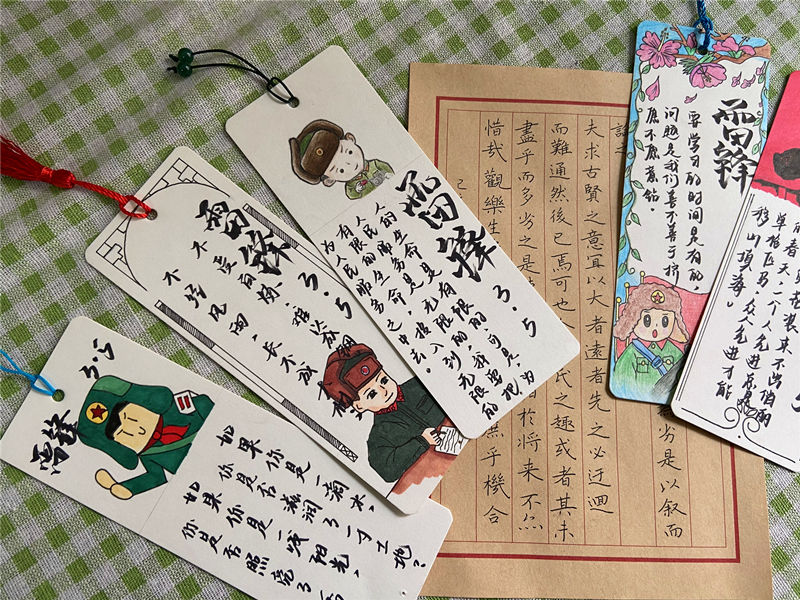 雷锋
3.5
如果你是一滴水,
你是否滋润了一寸土地?
如果你是一线阳光,
你是否照亮了
雷锋
3.5
不经风雨,长不成
不受百炼,难以成钢
雷锋
3.5
人的生命是有限的,可是为
人民服务是无限的,我要把
有限的生命,投入到无限的
为人民服务之中去。
雷锋
要学习的时间是有的,
问题是我们善不善于挤,
愿不愿意钻。
单枪匹马,众人先进才能
移山填海。
劣是以叙而
夫求古賢之意宜以大者遠者先之必迂迴
而難通然後已焉可也
民之趣或者其未
盡乎而多劣之是
於将来不
惜哉觀樂生
無乎機合